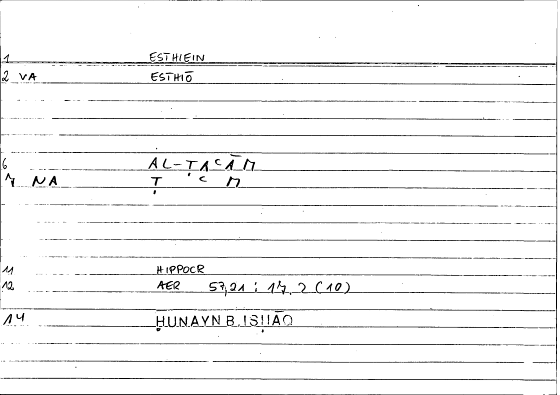 1 ESTHIEIN
2 VA ESTHIŌ
6 AL-ṬAʿĀM
7 NA Ṭ ʿ M
11 HIPPOCR
12 AER 57,21 : 17,2 (10)
14 ḤUNAYN B. ISḤĀQ